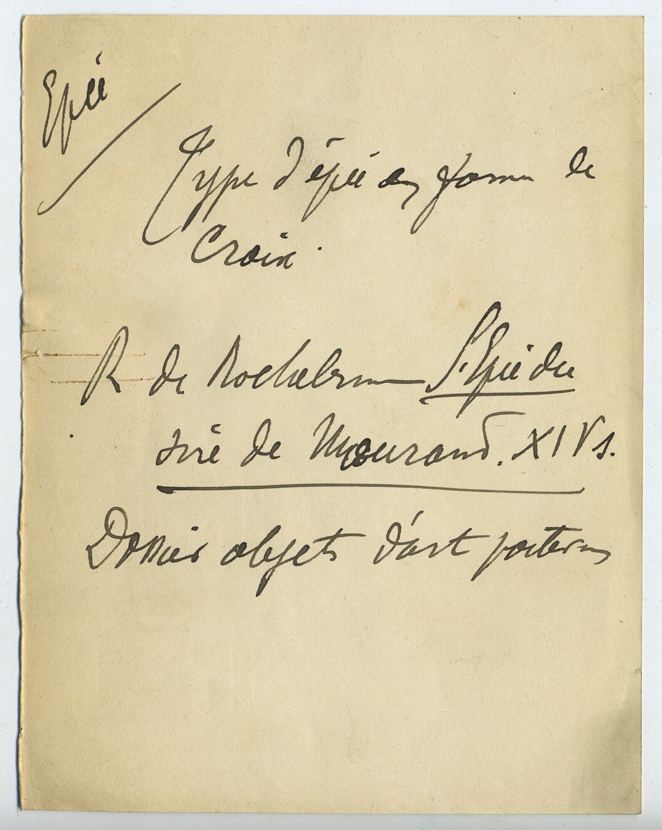 Epée
Type d'épée en forme de
Croix.
R de Rochebrune L'Epée du
sire de Mourand. XIVs.
Dossier objets d'art poitevins